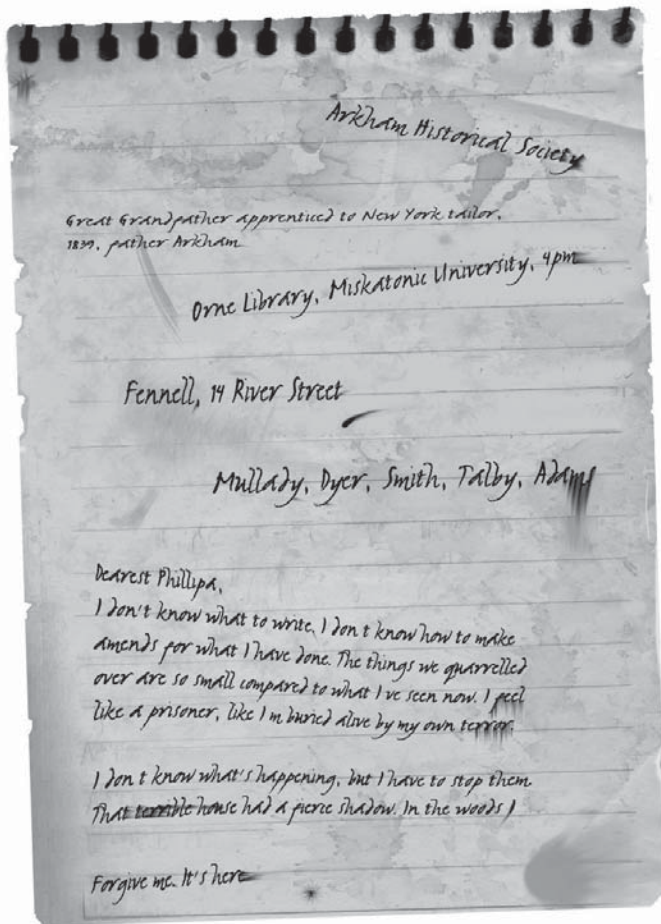 Arkham Historical Society
Great Grandfather apprenticed to New York tailor,
1839, father Arkham
Orne Library, Miskatonic University, 4pm
Fennell, 14 River Street
Mullady, Dyer, Smith, Talby, Adams
Dearest Phillipa,
I don't know what to write. I don't know how to make
amends for what I have done. The things we quarrelled
over are so small compared to what I've seen now. I feel
like a prisoner, like I'm buried alive by my own terror.
I don't know what's happening, but I have to stop them.
That terrible house had a fierce shadow. In the woods I
Forgive me. It's here